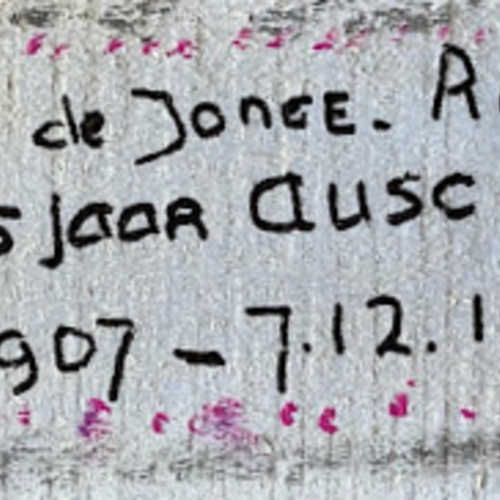 de JonGE. R
5 jaaR ausc
907 - 7.12.1